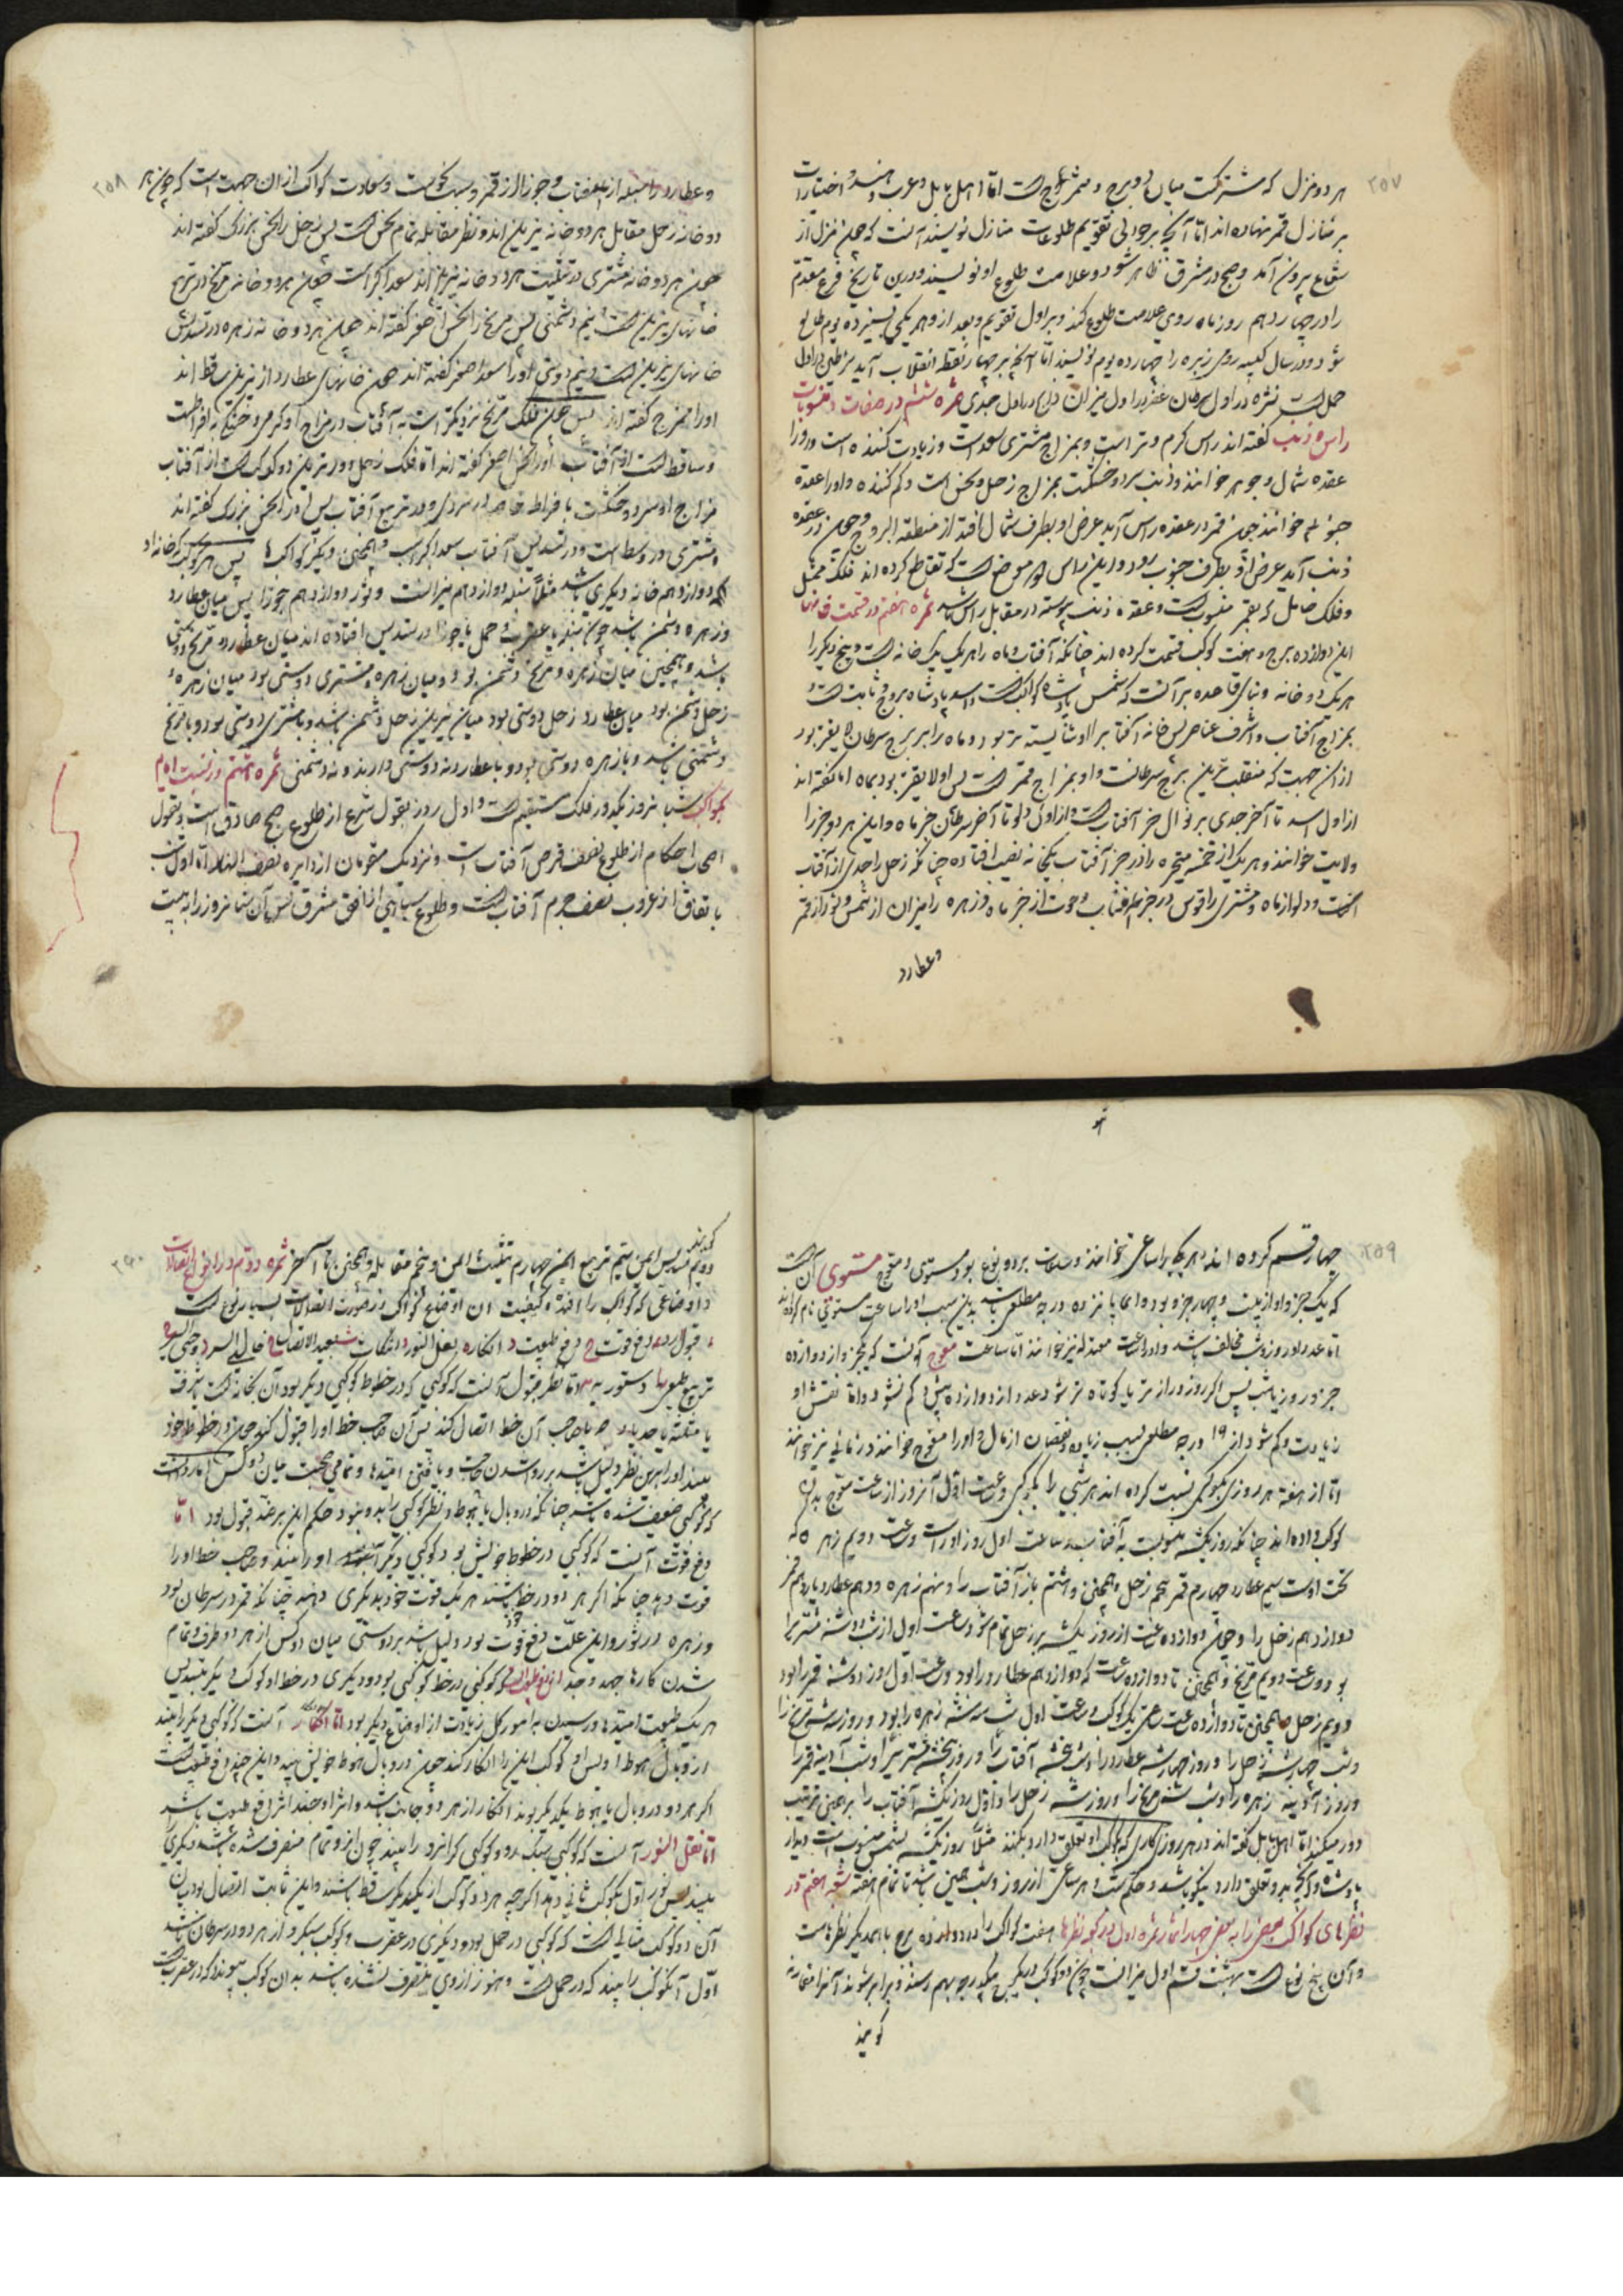 ۲۵۷
هر دو منزل که مشترکست میان دو برج ممتزج است اما اهل بابل و عرب و هند اختیارات
بر منازل قمر نهاده اند اما آنچه بر حوالی تقویم طلوعات منازل نویسند آنست که چون منزل از
شعاع بیرون آمد و صبح در مشرق ظاهر شود و علامت طلوع او نویسند و درین تاریخ فرع مقدم
را در چهاردهم روز ماه رومی علامت طلوع کند و بر اول تقویم و بعد از و هر یکی بسیزده یوم طالع
شود و در سال کبیسه رومی زبره را چهارده یوم نویسند اما آنچه بر چهار نقطه انقلاب آید شرطین در اول
حمل است نثره در اول سرطان غفر در اول میزان ذابح در اول جدی ثمره ششم در صفات و منسوبات
راس و ذنب گفته اند راس گرم و تر است و بمزاج مشتری سعد است و زیادت کننده است و او را
عقده شمال و جوزهر خوانند و ذنب سرد و خشکست بمزاج زحل و نحس است و کم کننده و او را عقده
جنوبی خوانند چون قمر در عقده راس آید عرض او بطرف شمال افتد از منطقة البروج و چون در عقده
ذنب آید عرض او بطرف جنوب بود و این راس موضعیست که تقاطع کرده اند فلک ممثل
و فلک حامل که بقمر منسوبست و عقده ذنب پیوسته در مقابل راس باشد ثمره هفتم در قسمت خانها
این دوازده برج بر هفت کوکب قسمت کرده اند چنانکه آفتاب و ماه را هر یک یک خانه است و پنج دیگر را
هر یک دو خانه و بنای قاعده بر آنست که شمس پادشاه کواکبست و اسد پادشاه بروج و ثابت است
بمزاج آفتاب و اشرف عناصر پس خانه آفتاب را او شایسته تر بود و ماه را برج سرطان لایقتر بود
از آن جهت که منقلب ترین برج سرطانست و او بمزاج قمر است پس او لایقتر بود بماه اما گفته اند
از اول اسد تا آخر جدی بر توالی حیز آفتابست و از اول دلو تا آخر سرطان حیز ماه و این هر دو حیز را
ولایت خوانند و هر یک از خمسه متحیره را در حیز آفتاب یکخانه نصیب افتاده چنانکه زحل را جدی از آفتاب
است و دلو از ماه و مشتری را قوس در حیز آفتاب و حوت از حیز ماه و زهره را میزان از شمس و ثور از قمر
و عطارد
۲۵۸
و عطارد را سنبله از آفتاب و جوزا از قمر و سبب نحوست و سعادت کواکب از آن جهت است که چون هر
دو خانه زحل مقابل هر دو خانه نیرین اند و نظر مقابله تمام نحس است پس زحل را نحس بزرگ گفته اند
چون هر دو خانه مشتری در تثلیث هر دو خانه نیرین اند سعد اکبر است چون هر دو خانه مریخ در تربیع
خانهای نیرین است و نیم دشمنی پس مریخ را نحس اصغر گفته اند چون هر دو خانه زهره در تسدیس
خانهای نیرین است و نیم دوستی او را سعد اصغر گفته اند چون خانهای عطارد از نیرین ساقط اند
او را ممتزج گفته اند پس چون فلک مریخ نزدیکتر است به آفتاب و مزاج او گرمی و خشکی به افراطست
و ساقط است از آفتاب او را نحس اصغر گفته اند اما فلک زحل دورترین دو کوکبست از آفتاب
مزاج او سرد و خشکست با فراط خاصه در سردی و در تربیع آفتاب پس او را نحس بزرگ گفته اند
و مشتری در وسط است و در تسدیس آفتاب سعد اکبر است و همچنین دیگر کواکب پس هر کوکب که خانه او
دوازدهم خانه دیگری باشد مثلاً سنبله دوازدهم میزانست و ثور دوازدهم جوزا پس میان عطارد
و زهره دشمن باشد چون سنبله با عقرب و حمل با جوزا در تسدیس افتاده اند میان عطارد و مریخ دوستی
باشد و همچنین میان زهره و مریخ دشمن بود و میان زهره و مشتری دوستی بود میان زهره و
زحل دشمن بود میان عطارد زحل دوستی بود میان نیرین زحل دشمن باشد و با مشتری دوستی بود و با مریخ
دشمنی باشد و با زهره دوستی بود و با عطارد نه دوستی دارند و نه دشمنی ثمره هشتم در نسبت ایام
بکواکب شبانروز یکدور فلک مستقیم است و اول روز بقول شرع از طلوع صبح صادق است و بقول
اصحاب احکام از طلوع نصف قرص آفتاب است و نزدیک منجمان از دایره نصف النهار اما اول شب
باتفاق از غروب نصف جرم آفتابست و طلوع سیاهی از افق مشرق پس آن شبانروز را به بیست
۲۵۹
چهار قسم کرده اند و هر یکی را ساعتی خوانند و ساعات بر دو نوع بود مستوی و معوج مستوی آن است
که یک جزو او از بیست و چهار جزو بود و ای پانزده درجه مطلعی باشد بدین سبب او را ساعت مستوی نام کرده اند
اما عدد او در روز و شب مخالف باشد و او را ساعت معتدله نیز خوانند اما ساعت معوج آنست که یکجزو از دوازده
جزو روز یا شب پس اگر روز دراز تر یا کوتاه تر شود عدد از دوازده بیش و کم نشود و اما نقش او
زیادت و کم شود از ۱۹ درجه مطلعی بسبب زیاده و نقصان ازمان و او را معوج خوانند و زمانی نیز خوانند
اما از هفته هر روزی بکوکبی نسبت کرده اند هر شبی را بکوکبی و ساعت اول آن روز از ساعت معوج بدان
کوکب داده اند چنانکه روز یکشنبه منسوبست به آفتاب پس ساعت اول روز او راست و ساعت دویم زهره که
تحت اوست سیم عطارد چهارم قمر پنجم زحل و همچنین و هشتم باز آفتاب را و نهم زهره و دهم عطارد یازدهم قمر
دوازدهم زحل را و چون دوازده ساعت از روز یکشنبه بر زحل تمام شود ساعت اول از شب دوشنبه مشتری را
بود و ساعت دویم مریخ و همچنین تا دوازده ساعت که دوازدهم عطارد را بود و ساعت اول روز دوشنبه قمر را بود
دویم زحل همچنین تا دوازده ساعت هر ساعتی یک کوکب و ساعت اول شب سه شنبه زهره را بود و روز سه شنبه مریخ را
و شب چهارشنبه زحل را و روز چهارشنبه عطارد را و شب پنجشنبه آفتاب را و روز پنجشنبه مشتری را و شب آدینه قمر را
و روز آدینه زهره را و شب شنبه مریخ را و روز شنبه زحل را و اول روز یکشنبه آفتاب را بر همین ترتیب
دور میکند اما اهل بابل گفته اند در هر روزی کاری که بکوکب او تعلق دارد بکنند مثلاً روز یکشنبه بشمس منسوبست دیدار
پادشاه و آنچه بدو تعلق دارد نیکو باشد و حکم شب و هر ساعتی از روز و شب همین باشد تا تمام هفته شعبه هفتم در
نظرهای کواکب بعضی را به بعضی چهار اثمار ثمره اول در ذکر نظرها هفت کواکب را در دوازده برج با همدیگر نظرهاست
و آن پنج نوع است بهشت قسم اول مقارنه است چون دو کوکب در یک برج یکدرجه بهم رسند و برابر شوند آنرا مقارنه
کویند
۲۶۰
کویند
دویم تسدیس ایمن سیم تربیع ایمن چهارم تثلیث ایمن و پنجم مقابله و همچنین تا آخر ثمره دوم در انواع اتصالات
و اوضاعی که کواکب را افتد و کیفیت آن اوضاع کواکب در صورت اتصالات بسیار نوع است
قبول دفع قوت دفع طبیعت انکار نقل النور انتکاث بعید الاتصال خالی السیر وحشی السیر
تربیع طبیعی دستوریه اما نظر قبول آنست که کوکبی که در خطوط کوکبی دیگر بود آن بخانه است یا شرف
یا مثلثه یا حد یا وجه با صاحب آن خط اتصال کند پس آن صاحب خط او را قبول کند چون در خطوط خود
بیند او را بدین نظر دلیل باشد بر روا شدن حاجت و یافتن امیدها و تمامی محبت میان دو کس اما
که کوکبی ضعیف شده باشد چنانکه در وبال یا هبوط و نظر کوکبی را بدو نبود حکم این بر ضد قبول بود اما
دفع قوت آنست که کوکبی در خطوط خویش بود و کوکبی دیگر او را بیند و صاحب خط او را
قوت دهد چنانکه اگر هر دو در خط باشند هر یک قوت خود بدیگری دهند چنانکه قمر در سرطان بود
و زهره در ثور و این علت دفع قوت بود و دلیل باشد بر دوستی میان دو کس از هر دو طرف و تمام
شدن کارها بجهد و جد کوکبی در خط کوکبی بود و دیگری در خط او کوکب دیگر بتسدیس
هر یک طبیعت امیدها و رسیدن به امور کل زیادت از اوضاع دیگر بود اما انکار آنست که کوکبی دیگر را بیند
از وبال هبوط او پس او کوکب این را انکار کند چون در وبال هبوط خویش بیند و این ضد دفع طبیعت است
اگر هر دو در وبال یا هبوط یکدیگر بوند انکار از هر دو جانب باشد و اثر او ضد اثر دفع طبیعت باشد
اما نقل النور آنست که کوکبی سبک رو کوکبی گرانرو را بیند چون از و تمام منصرف شده باشد دیگری را
بیند پس نور اول بکوکب ثانی دهد اگر چه هر دو کوکب از یکدیگر ساقط باشند و این ثابت اتصال بود میان
آن دو کوکب مثالی است که کوکبی در حمل بود و دیگری در عقرب و کوکب سبکرو از هر دو در سرطان باشد
اول آن کوکب را بیند که در حمل است و هنوز از وی منصرف نشده باشد بدان کوکب پیوندد که در عقرب است